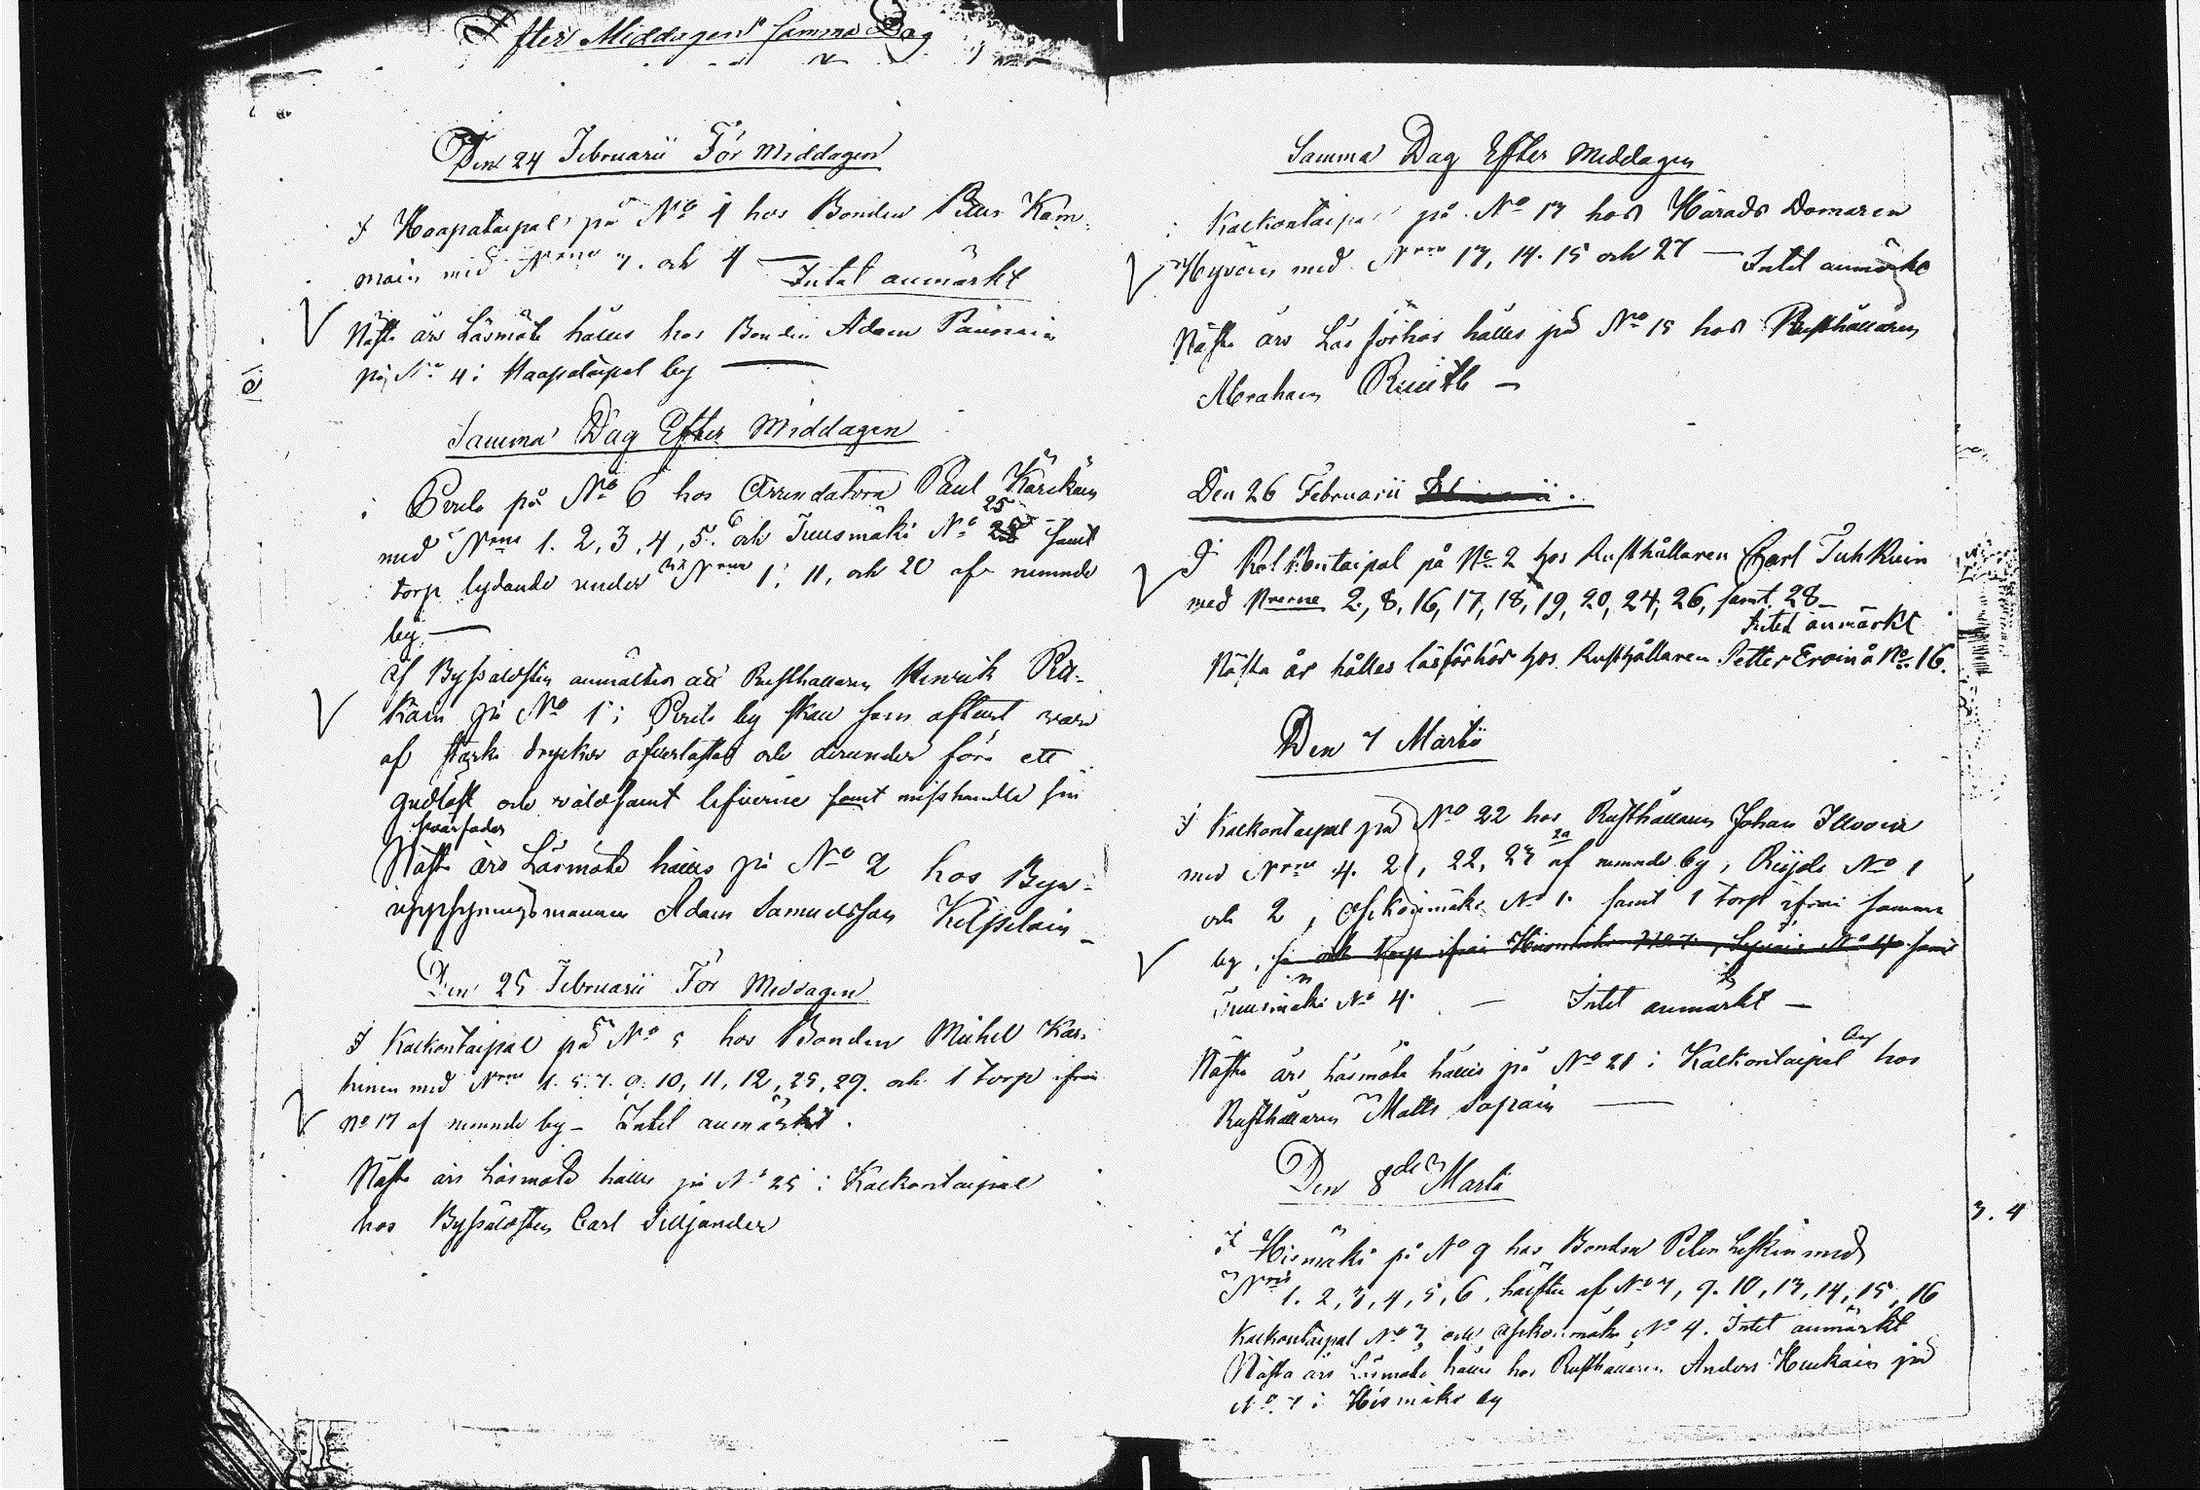 Efter Middagen samma Dag
Den 24 Februarii För Middagen
I Haapataipal på No 4 hos Bonden Petter Käm-
main med Nrne 7. och 4 — Intet anmärkt
Nästa års Läsmöte hålles hos Bonden Adam
på No 4 i Haapataipal by —
Samma Dag Efter Middagen
i Perilä på No 6 hos Arrendatorn Paul Kärikäin
med Nrne 1. 2, 3, 4, 5. 6 och Tuusmäki No 25 samt
torp lydande under Nrne 1, 11, och 20 af nemnde
by —
af Byssåldsten anmältes att Rusthållaren Henrik
på No 1 i Perilä by skall som oftast vara
af starka drycker öfverlastad och derunder föra ett
gudlöst och våldsamt lefverne samt misshandla sin
svärfader
Nästa års Läsmöte hålles på No 2 hos Byw-
uppsyningsmannen Adam Samuelsson Kilpelain —
Den 25 Februarii För Middagen
I Kalkontaipal på No 5 hos Bonden Michel Kär-
hinen med Nrne 1. 5. 7. 9. 10, 11, 12, 25, 29. och 1 torp ifrån
No 17 af nemnde by — Intet anmärkt.
Nästa års Läsmöte hålles på No 25 i Kalkontaipal
hos Byssåldsten Carl Silljander
Samma Dag Efter Middagen
i Kalkontaipal på No 13 hos Härads Domaren
Hyvöin med Nrne 13, 14. 15 och 27 — Intet anmärkt
Nästa års Läs förhör hålles på No 15 hos Rusthållaren
Abraham Ruuth —
Den 26 Februarii
I Kalkontaipal på No 2 hos Rusthållaren Carl Tuhkuin
med Nrerne 2, 8, 16, 17, 18, 19, 20, 24, 26, samt 28 —
Intet anmärkt
Nästa år hålles läsförhör hos Rusthållaren Petter Eroin å No 16.
Den 7 Martii
I Kalkontaipal på No 22 hos Rusthållaren Johan Illvoin
med Nrne 4. 21, 22, 23 af nemnde by, Reijola No 1
och 2, No 1. samt 1 torp ifrån samma
by, och torp ifrån Hiismäki No 4 samt
Tuusmäki No 4. — Intet anmärkt —
Nästa års Läsmöte hålles på No 21 i Kalkontaipal by hos
Rusthållaren Matts Sapain —
Den 8de Martii
I Hiismäki på No 9 hos Bonden Peter Leskin med
Nris 1. 2, 3, 4, 5, 6, hälften af No 7, 9. 10, 13, 14, 15, 16
Kalkontaipal No 3, och No 4. Intet anmärkt
Nästa års Läsmöte hålles hos Rusthållaren Anders Huukain på
No 7 i Hiismäki by
3. 4